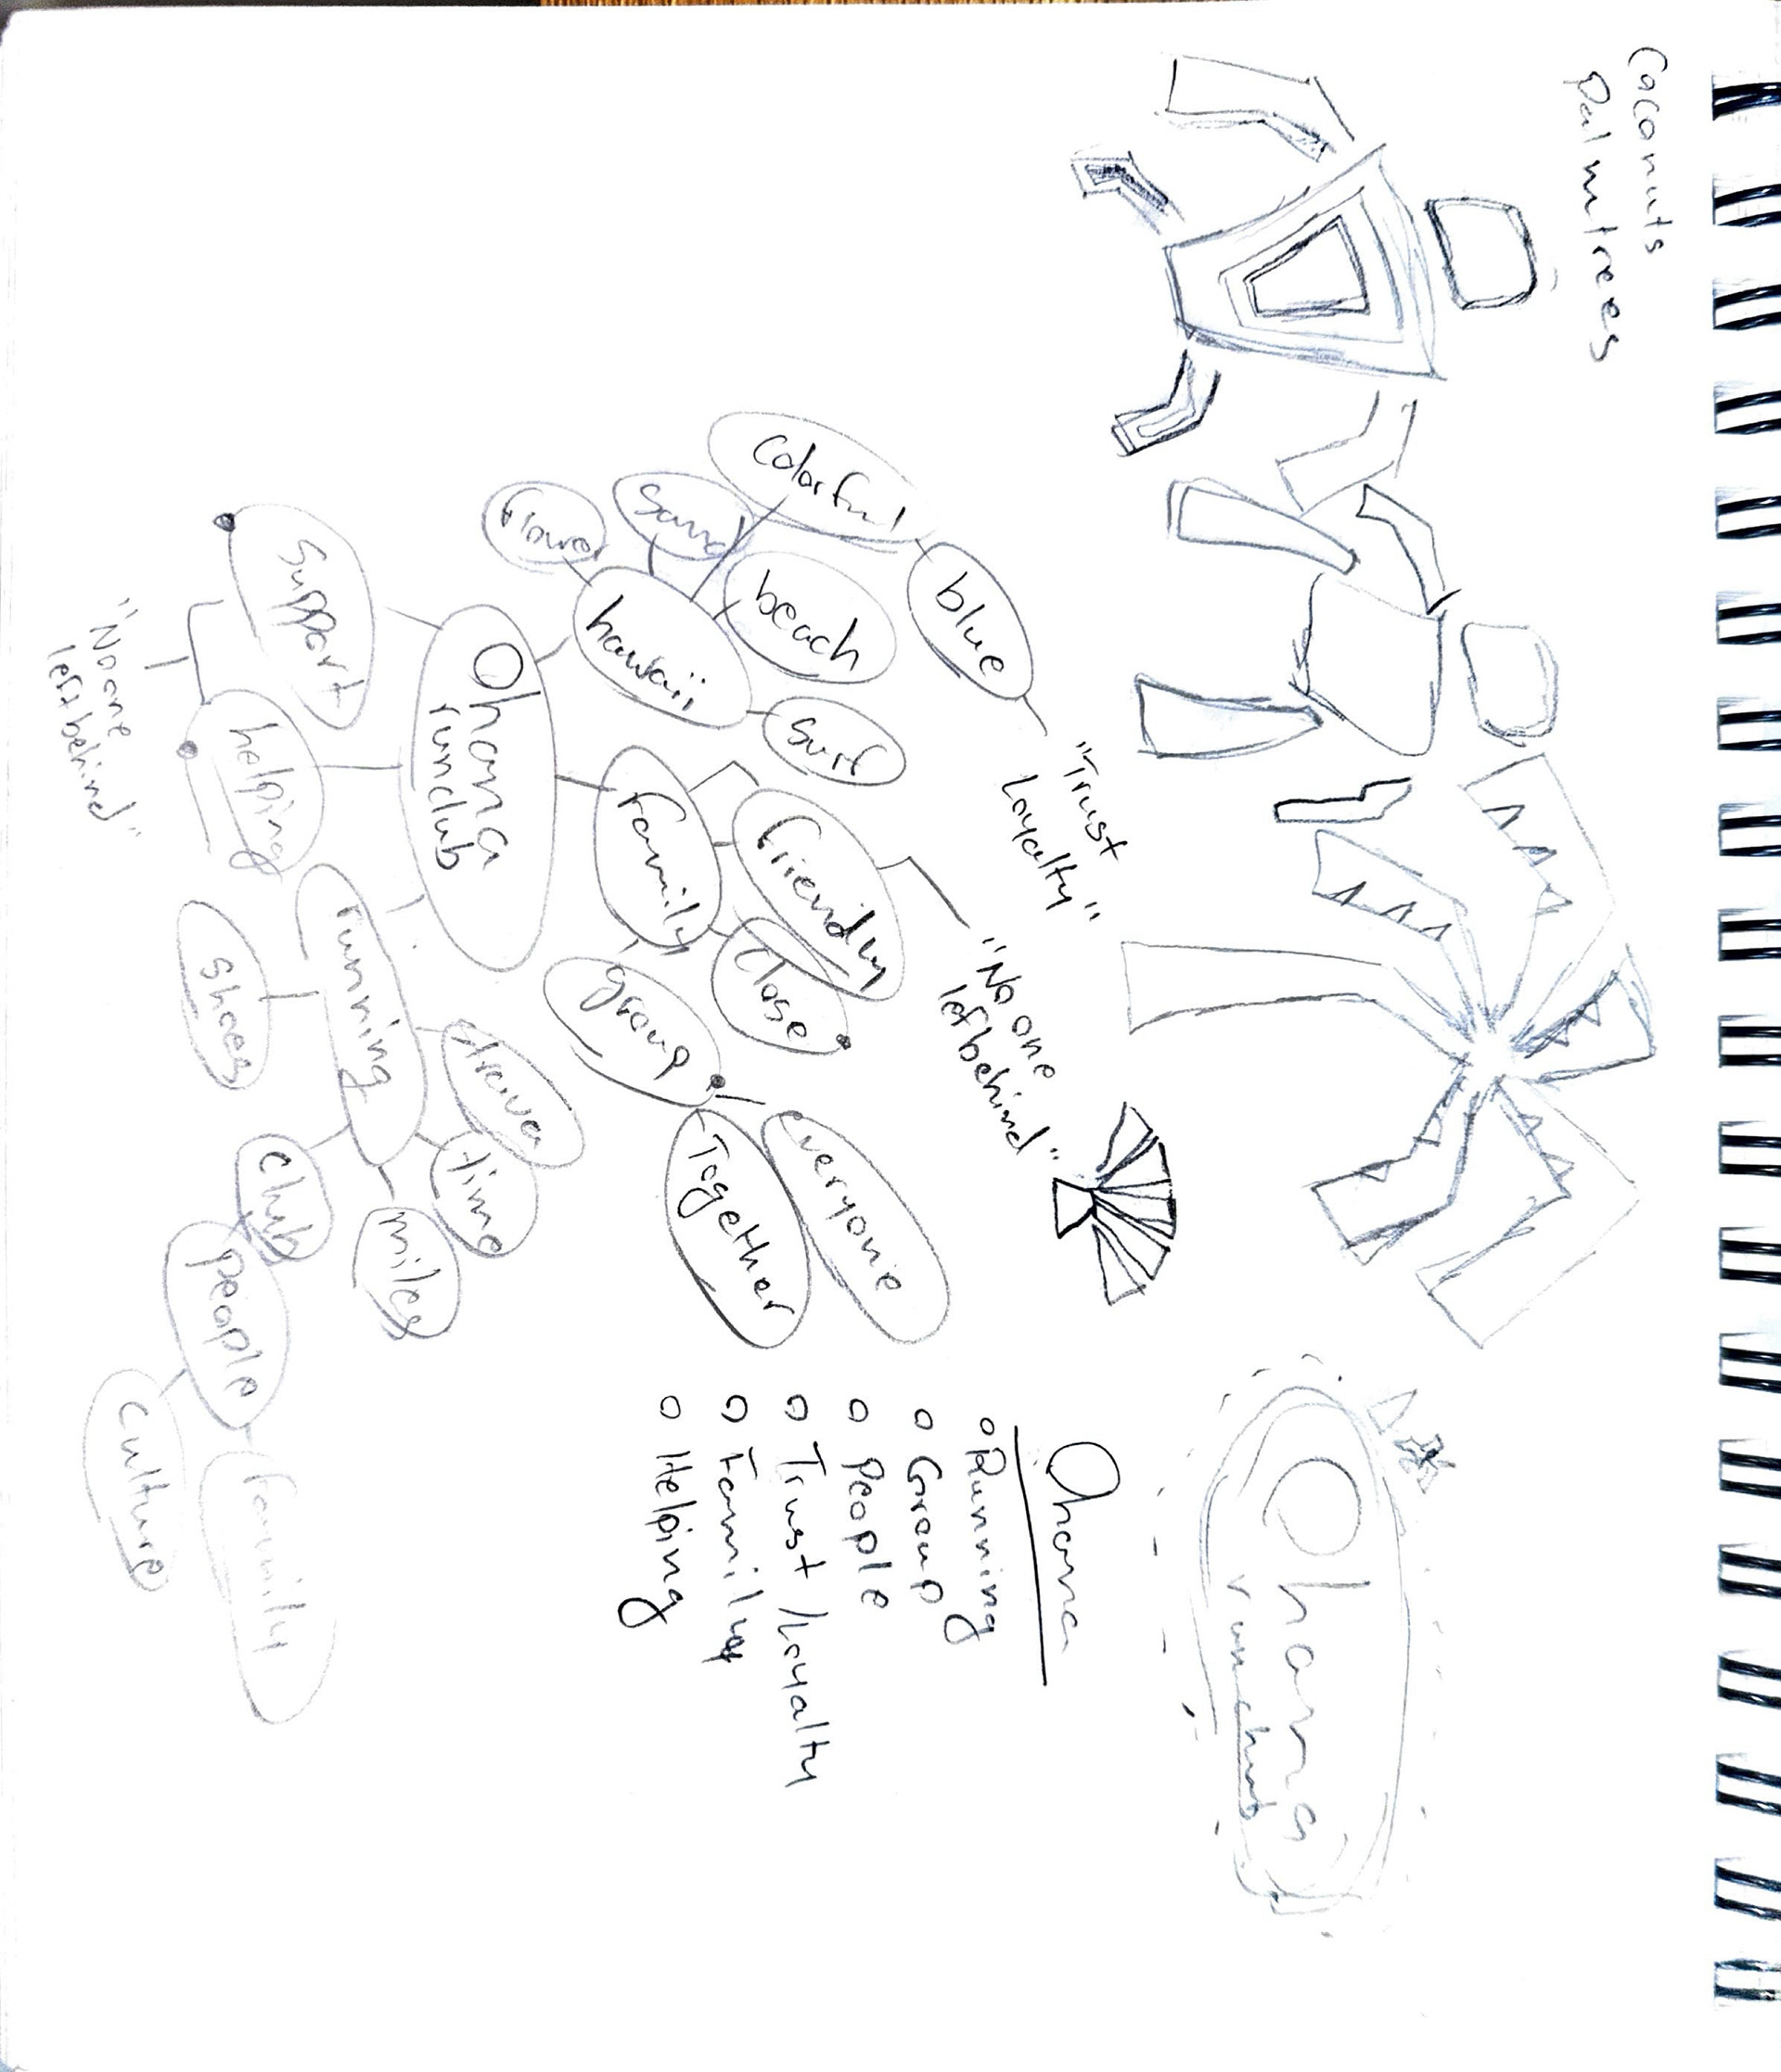 Coconuts
Palmtrees
Ohana
run club
Ohana
Running
Group
People
Trust / Loyalty
Family
Helping
blue
"Trust
Loyalty"
Colorful
beach
Sand
Flower
hawaii
surf
friendly
"No one
left behind"
Family
Close
group
everyone
Together
Ohana
runclub
Support
helping
"No one
left behind"
running
strava
time
Shoes
miles
Club
people
Family
Culture